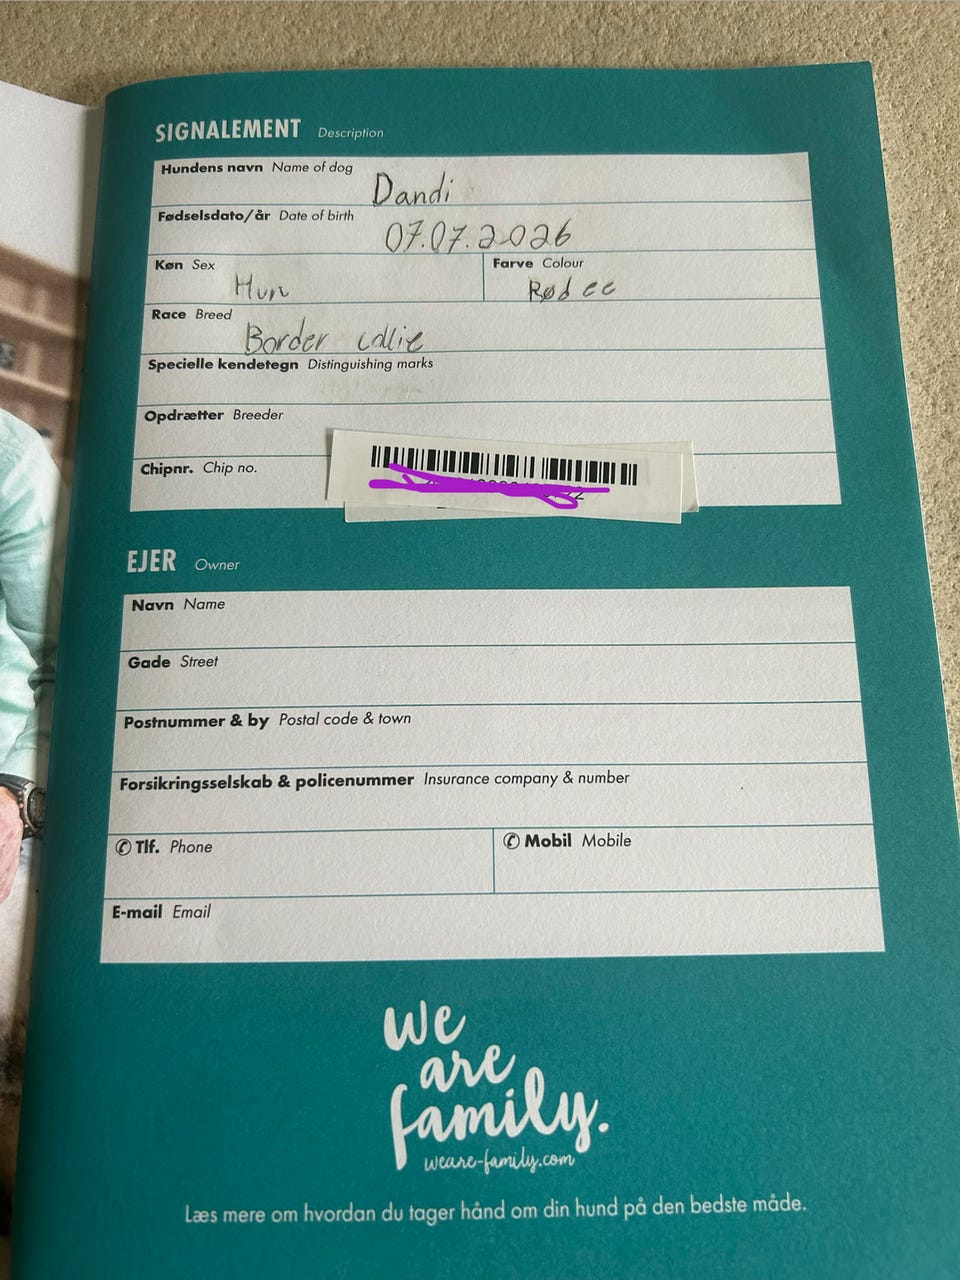 SIGNALEMENT Description
Hundens navn Name of dog
Dandi
Fødselsdato/år Date of birth
07.07.2026
Køn Sex
Hun
Farve Colour
Rød ee
Race Breed
Border collie
Specielle kendetegn Distinguishing marks
Opdrætter Breeder
Chipnr. Chip no.
EJER Owner
Navn Name
Gade Street
Postnummer & by Postal code & town
Forsikringsselskab & policenummer Insurance company & number
✆ Tlf. Phone
✆ Mobil Mobile
E-mail Email
we
are
family.
weare-family.com
Læs mere om hvordan du tager hånd om din hund på den bedste måde.